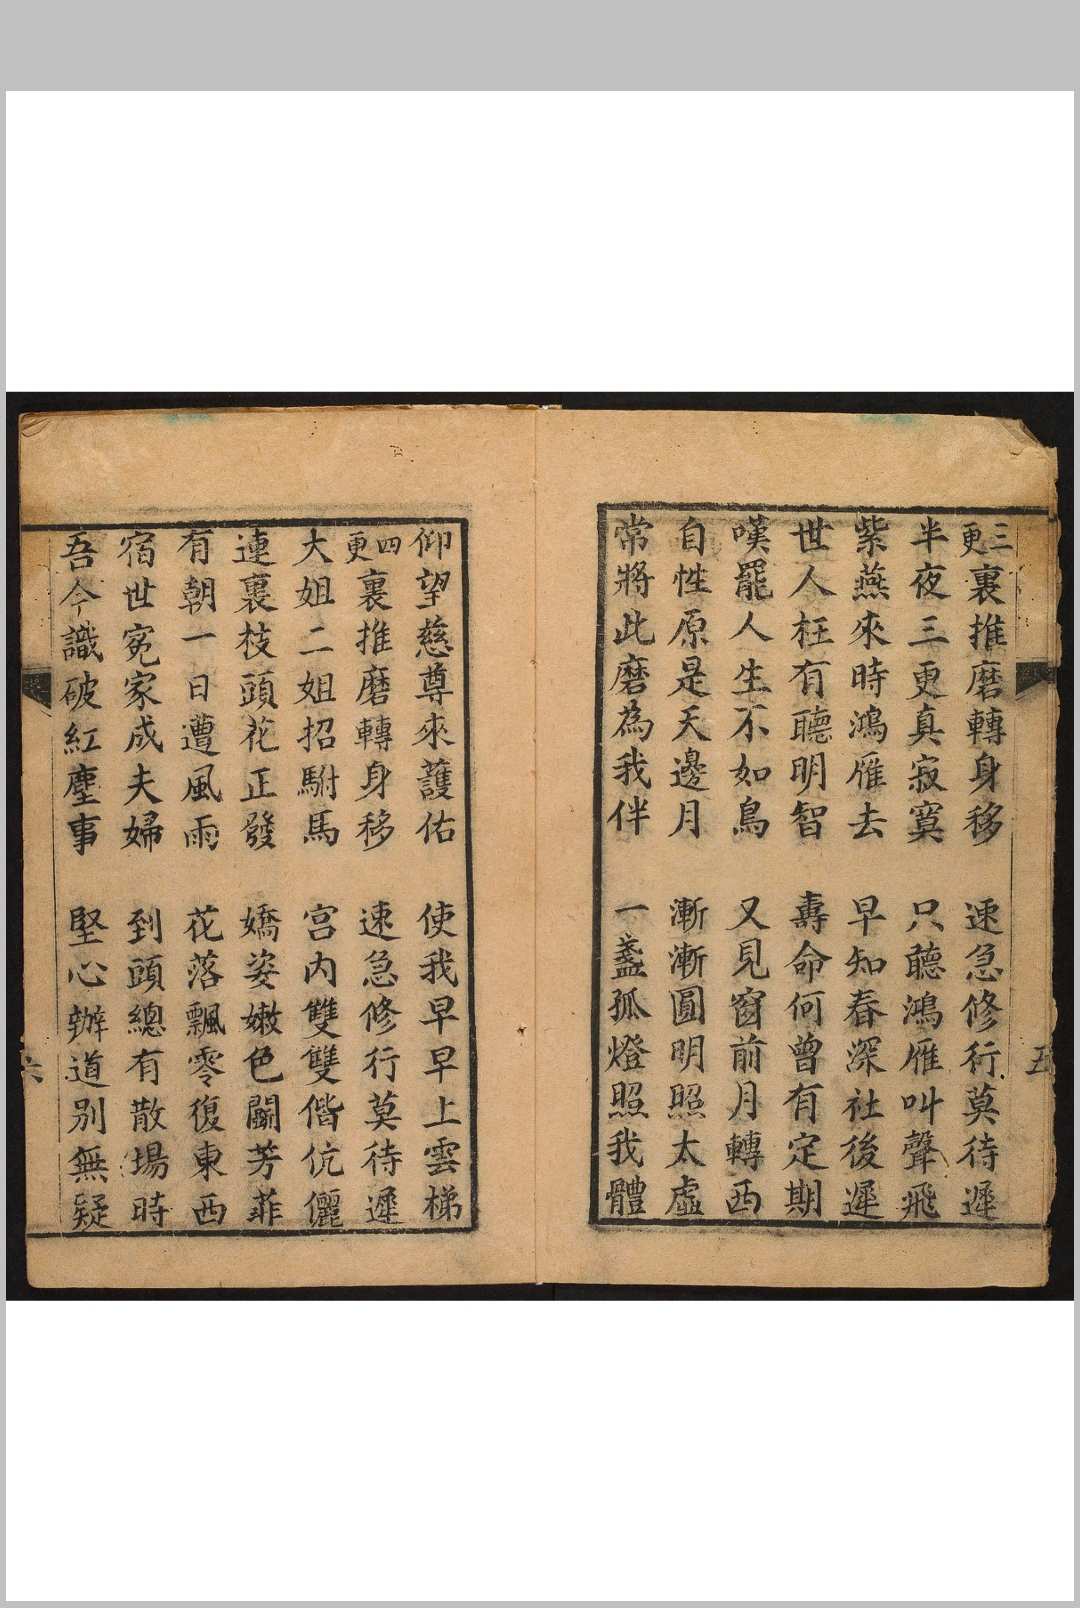 三更裏推磨轉身移　速急修行莫待遲
半夜三更真寂寞　只聽鴻雁叫聲飛
紫燕來時鴻雁去　早知春深社後遲
世人枉有聰明智　壽命何曾有定期
嘆罷人生不如鳥　又見窗前月轉西
自性原是天邊月　漸漸圓明照太虛
常將此磨為我伴　一盞孤燈照我體
五
仰望慈尊來護佑　使我早早上雲梯
四更裏推磨轉身移　速急修行莫待遲
大姐二姐招駙馬　宮內雙雙偕伉儷
連裏枝頭花正發　嬌姿嫩色鬬芳菲
有朝一日遭風雨　花落飄零復東西
宿世冤家成夫婦　到頭總有散場時
吾今識破紅塵事　堅心辦道別無疑
六